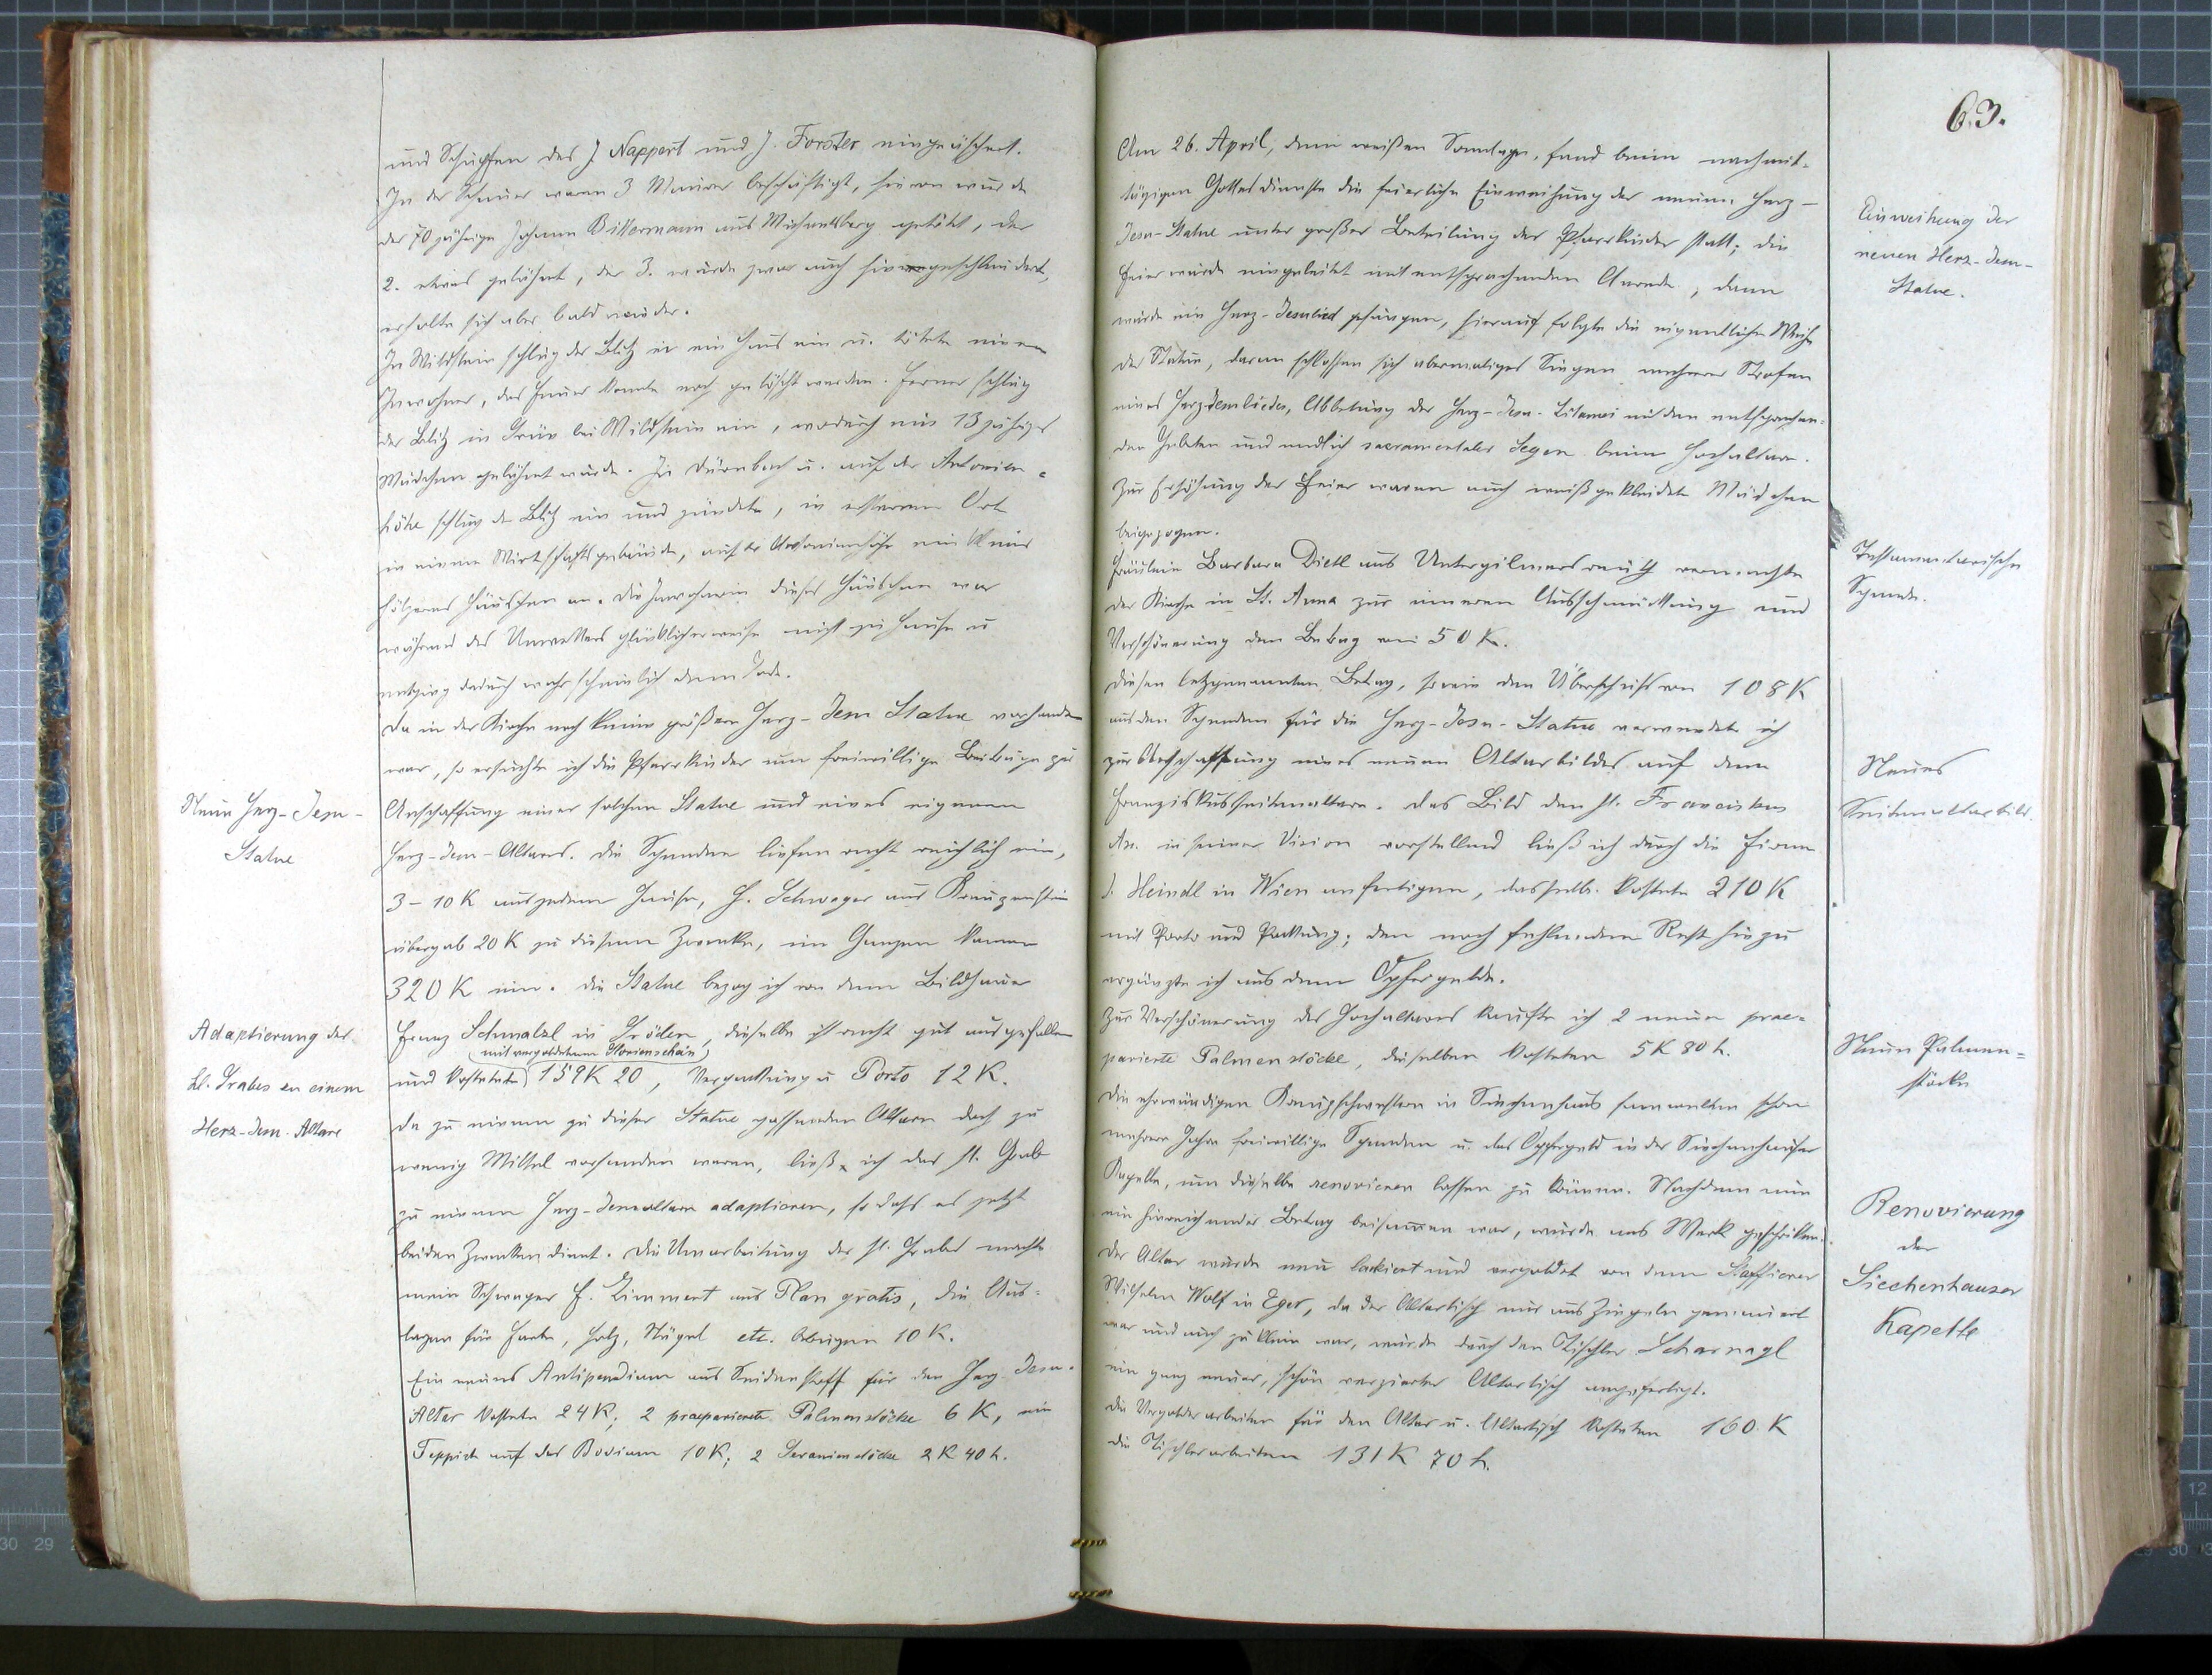 und Schupfen des J. Nappert und J. Forster eingeäschert.
In der Scheuer waren 3 Maurer beschäftigt, hievon wurde
der 70 jährige Johann Bittermann aus Michaelsberg getötet, der
2. etwas gelähmt, der 3. wurde zwar auch hingeschleudert,
erholte sich aber bald wieder.
In Wildstein schlug der Blitz in ein Haus ein u. tötete einen
Inwohner, das Feuer konnte noch gelöscht werden. Ferner schlug
der Blitz in Grün bei Wildstein ein, wodurch ein 13 jähriges
Mädchen gelähmt wurde. In Dürnbach u. auf der Antonien-
höhe schlug der Blitz ein und zündete, in ersterem Orte
in einem Wirtschaftsgebäude, auf der Antonienhöhe ein kleines
hölzernes Häuschen an. Die Inwohnerin dieses Häuschen war
während des Unwetters glücklicherweise nicht zu Hause u
entging dadurch wahrscheinlich dem Tode.
Da in der Kirche noch keine größere Herz-Jesu Statue vorhanden
war, so ersuchte ich die Pfarrkinder um freiwillige Beiträge zur
Neue Herz-Jesu-
Statue
Anschaffung einer solchen Statue und eines eigenen
Herz-Jesu-Altares. Die Spenden liefen recht reichlich ein,
3-10 K aus jedem Hause, H. Schwager aus Kreuzenstein
übergab 20 K zu diesem Zwecke, im Ganzen kamen
320 K ein. Die Statue bezog ich von dem Bildhauer
Adaptierung des
hl. Grabes zu einem
Herz-Jesu-Altare
Franz Schmalzl in Gröden, dieselbe ist recht gut ausgefallen
(mit vergoldetem Glorienschein)
und kostete 159 K 20, Verpackung u Porto 12 K.
Da zu einem zu dieser Statue passenden Altare doch zu
wenig Mittel vorhanden waren, ließ ich das hl. Grab
zu einem Herz-Jesualtare adaptieren, so dass es jetzt
beiden Zwecken dient. Die Umarbeitung des hl. Grabes machte
mein Schwager F. Zimmert aus Plan gratis, die Aus-
lagen für Farbe, Holz, Nägel etc. betrugen 10 K.
Ein neues Antipendium aus Seidenstoff für den Herz Jesu-
Altar kostete 24 K; 2 praeparierte Palmenstöcke 6 K, ein
Teppich auf das Podium 10 K; 2 Geranienstöcke 2 K 40 h.
63.
Am 26. April, dem weißen Sonntage, fand beim nachmit-
tägigen Gottesdienste die feierliche Einweihung der neuen Herz-
Jesu-Statue unter großer Beteilung der Pfarrkinder statt; die
Feier wurde eingeleitet mit entsprechender Anrede, dann
wurde ein Herz-Jesulied gesungen, hierauf folgte die eigentliche Weihe
der Statue, daran schlossen sich abermaliges Singen mehrerer Strofen
eines Herz Jesuliedes, Abbetung der Herz-Jesu-Litanei mit den entsprechen-
den Gebeten und endlich sacramentaler Segen beim Hochaltare.
Zur Erhöhung der Feier waren auch weißgekleidete Mädchen
beigezogen.
Einweihung der
neuen Herz-Jesu-
Statue.
Fräulein Barbara Dietl aus Untergilmersreuth vermachte
der Kirche in St. Anna zur inneren Ausschmückung und
Verschönerung den Betrag von 50 K.
Testamentarische
Spende.
Diesen letzgenannten Betrag, sowie den Überschuss von 108 K
aus den Spenden für die Herz-Jesu-Statue verwendete ich
zur Beschaffung eines neuen Altarbildes auf dem
Franziskusseitenaltare. Das Bild den hl. Franciskus
As. in seiner Vision vorstellend ließ ich durch die Firma
J. Heindl in Wien anfertigen, dasselbe kostete 210 K
mit Porto und Packung; den noch fehlenden Rest hiezu
ergänzte ich aus dem Opfergelde.
Neues
Seitenaltarbild.
Zur Verschönerung des Hochaltares kaufte ich 2 neue prae-
parierte Palmenstöcke, dieselben kosteten 5 K 80 h.
Neue Palmen-
stöcke
Die ehrwürdigen Kreuzschwestern in Siechenhaus sammelten schon
mehrere Jahre freiwillige Spenden u. das Opfergeld in der Siechenhauser
Kapelle, um dieselbe renovieren lassen zu können. Nachdem nun
ein hinreichender Betrag beisammen war, wurde ans Werk geschritten.
Der Altar wurde neu lackiert und vergoldet von dem Staffierer
Wilhelm Wolf in Eger, da der Altartisch nur aus Ziegeln gemauert
war und auch zu klein war, wurde durch den Tischler Scharnagl
ein ganz neuer, schön verzierter Altartisch angefertigt.
Die Vergolderarbeiten für den Altar u. Altartisch kosteten 160 K
die Tischlerarbeiten 131 K 70 h.
Renovierung
der
Siechenhauser
Kapelle